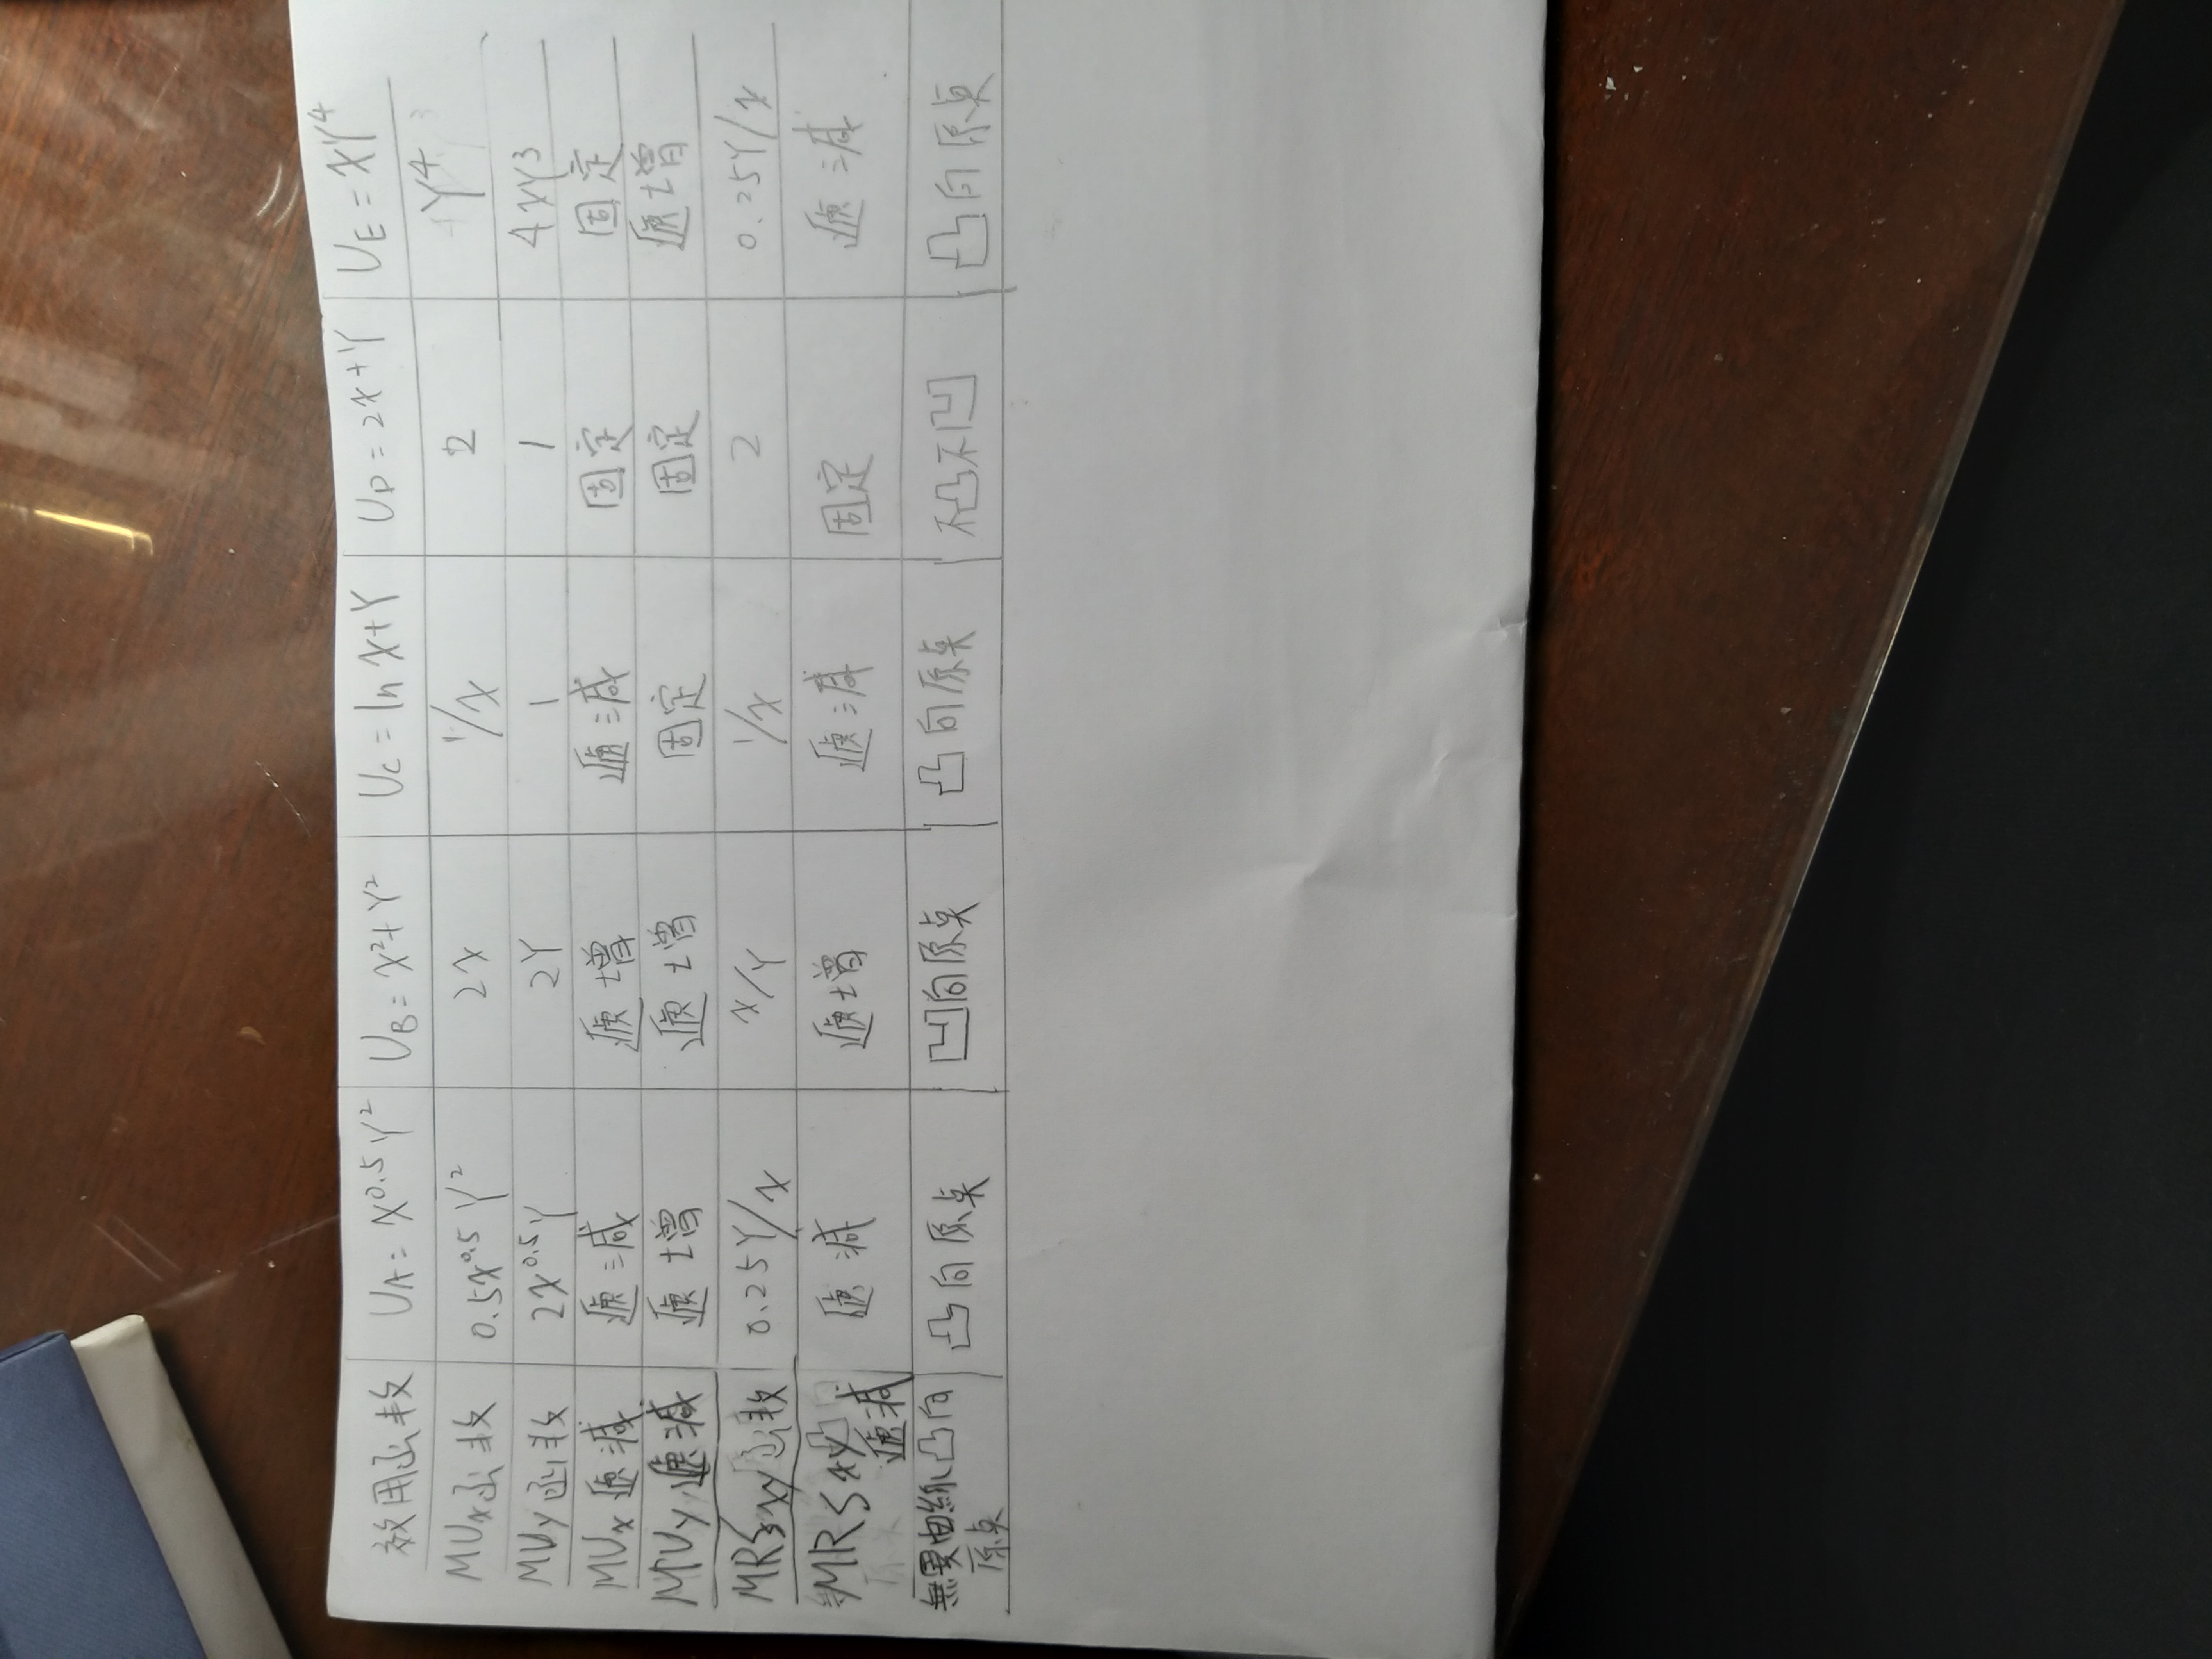 效用函數 U_A = X^0.5 Y^2 U_B = X^2 + Y^2 U_C = ln X + Y U_D = 2X + Y U_E = XY^4
MU_X函數 0.5X^0.5 Y^2 2X 1/X 2 Y^4
MU_Y函數 2X^0.5 Y 2Y 1 1 4XY^3
MU_X 遞減 遞減 遞增 遞減 固定 固定
MU_Y 遞減 遞增 遞增 固定 固定 遞增
MRS_XY函數 0.25Y/X X/Y 1/X 2 0.25Y/X
MRS_XY 遞減 遞減 遞增 遞減 固定 遞減
無異曲線凸向原點 凸向原點 凹向原點 凸向原點 不凸不凹 凸向原點